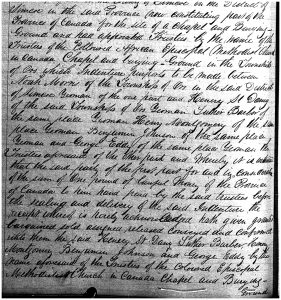 Simcoe in the said Province now constituting part of the
Province of Canada for the use of a Chapel and Burying
Ground and had appointed Trustees by the Name of the
Trustees of the Colored African Episcopal Methodist Church
in Canada Chapel and burying Ground in the Township
of Oro which Indenture purports to be made between
Noah Myers of the Township of Oro in the said District
of Simcoe Yeoman of the one part and Henry St Dany
of the said Township of Oro Yeoman Barber of
the same place Yeoman Henry of the same
place Yeoman Benjamin Johnson of the same place
Yeoman and George Eddy of the same place Yeoman the
Trustees aforesaid of the other part and Whereby it is witnessed
that the said party of the first part for and in consideration
of the sum of five pounds of lawful Money of the Province
of Canada to him in hand paid by the said trustees before
the sealing and delivery of the said Indenture the
receipt whereof is hereby acknowledged hath given granted
bargained sold aliened released conveyed and confirmed
unto them the said Henry St Dany Barber Henry
Benjamin Johnson and George Eddy by the
name aforesaid of the Trustees of the Colored Episcopal
Methodist Church in Canada Chapel and Burying
Ground